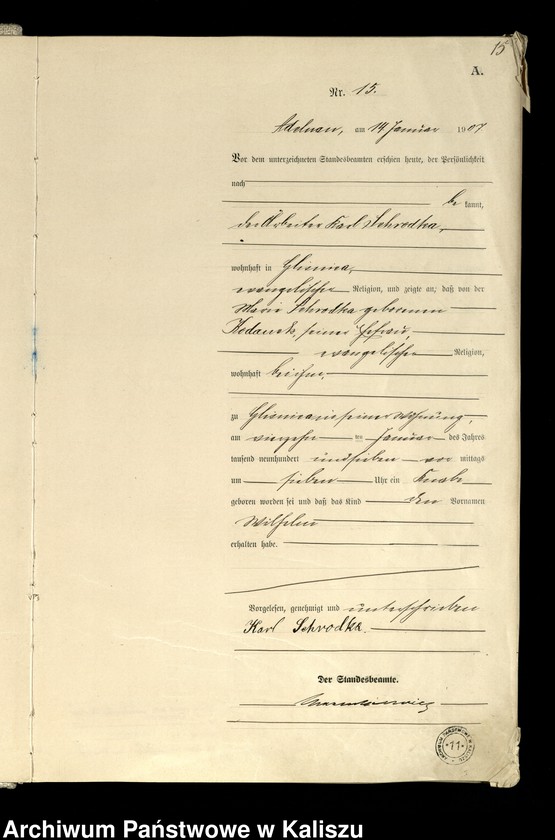 15
A.
Nr. 15.
Adelnau, am 14 Januar 1907
Vor dem unterzeichneten Standesbeamten erschien heute, der Persönlichkeit
nach
be kannt,
der Arbeiter Karl Schrodka,
wohnhaft in Glisnica,
evangelischer Religion, und zeigte an, daß von der
Marie Schrodka geborenen
seiner Ehefrau,
evangelischer Religion,
wohnhaft bei ihm,
zu Glisnica in seiner Wohnung,
am ten Januar des Jahres
tausend neunhundert und sieben vor mittags
um sieben Uhr ein Knabe
geboren worden sei und daß das Kind den Vornamen
Wilhelm
erhalten habe.
Vorgelesen, genehmigt und unterschrieben
Karl Schrodka.
Der Standesbeamte.
11
Archiwum Państwowe w Kaliszu